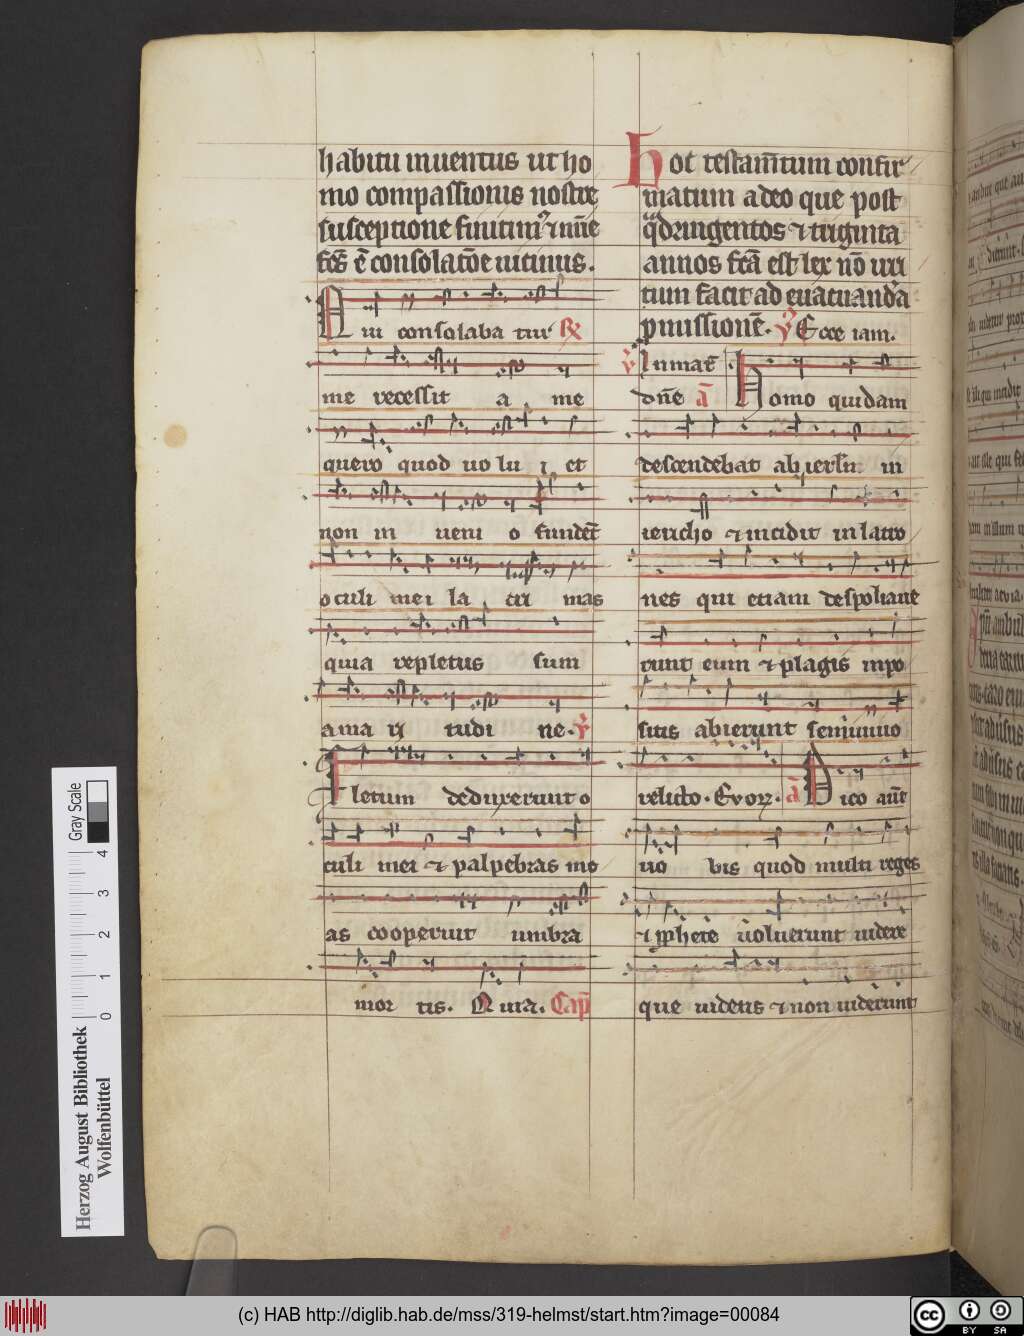 habitu inuentus ut ho
mo compassionis nostre
susceptione finitimꝰ ⁊ nr̄e
fc̄s ē consolatōe uicinus.
Qui consolaba tur ℞
me recessit a me
quero quod uo lu i et
non in ueni o fundēt
oculi mei la cri mas
quia repletus sum
ama ri tudi ne. ℣
Fletum deduxerunt o
culi mei ⁊ palpebras me
as cooperuit umbra
mor tis. Quia. Cap̄
Hoc testam̄tum confir
matum a deo que post
q̈dringentos ⁊ triginta
annos fc̄a est lex nō irri
tum facit ad euacuandā
ꝓmissionē. ℣ Ecce iam.
℣ In mat̄ Homo quidam
dn̄e a̅
descendebat ab ierlm̄ in
iericho ⁊ incidit in latro
nes qui etiam despoliaue
runt eum ⁊ plagis inpo
sitis abierunt semiuiuo
relicto. Evoꝝ. a̅ Dico aūe
uo bis quod multi reges
⁊ ꝓphete uoluerunt uidere
que uidetis ⁊ non uiderunt
Gray Scale
0 1 2 3 4
Herzog August Bibliothek
Wolfenbüttel
(c) HAB http://diglib.hab.de/mss/319-helmst/start.htm?image=00084
cc BY SA